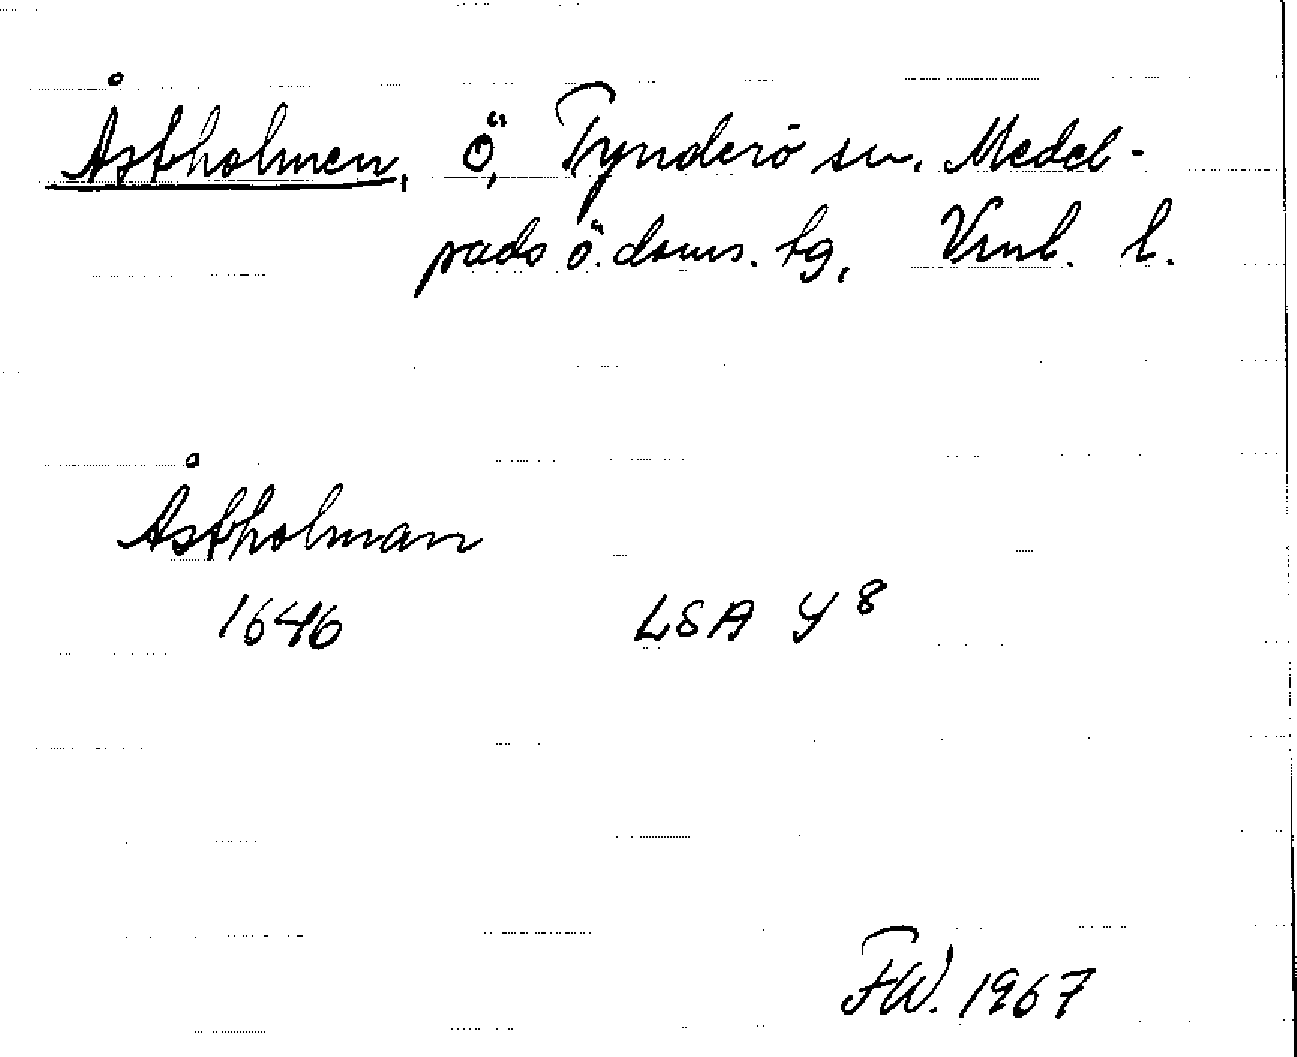 Åstholmen, ö, Tynderö sn. Medel-
pads ö. doms. tg, Vnl. l.
Åstholman
1646 LSA Y 8
FW. 1967